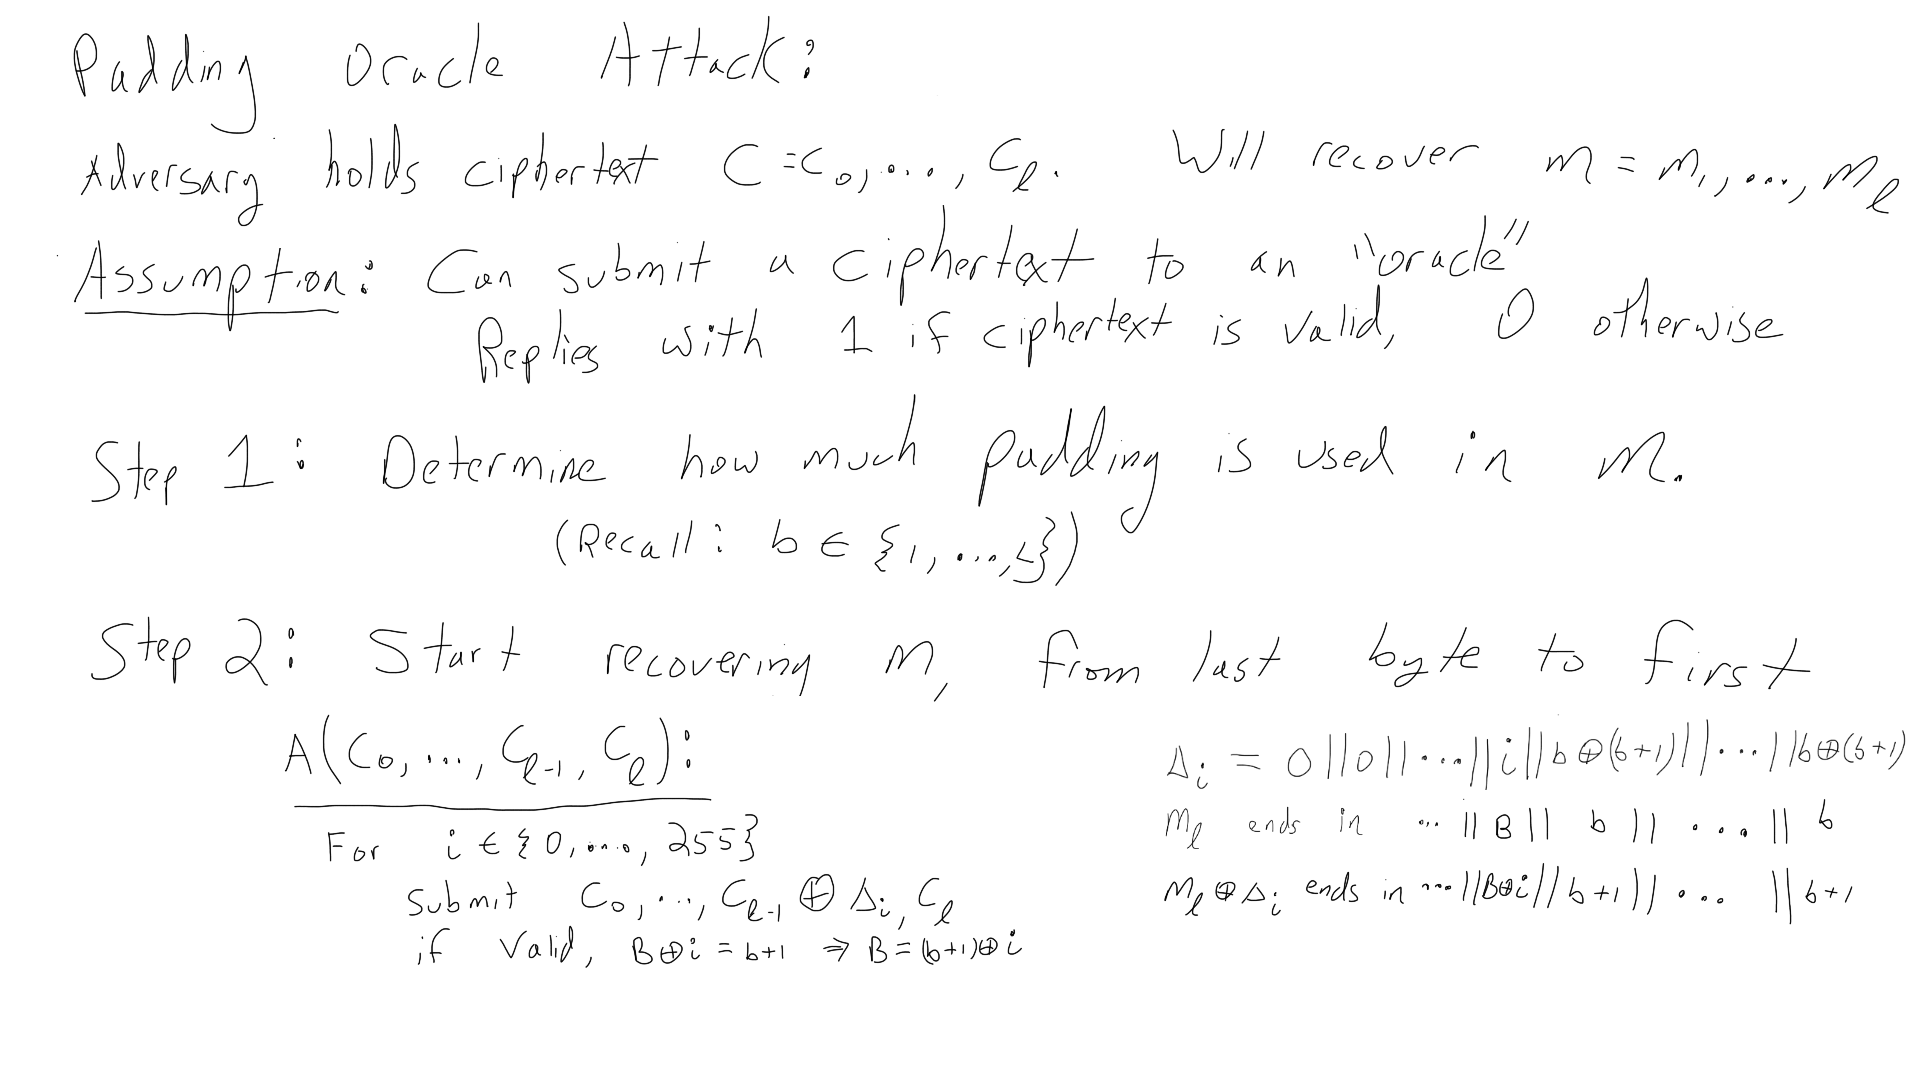 Padding Oracle Attack:
Adversary holds ciphertext C = C₀, ..., Cℓ. Will recover m = m₁, ..., mℓ
Assumption: Can submit a ciphertext to an "oracle"
Replies with 1 if ciphertext is valid, 0 otherwise
Step 1: Determine how much padding is used in m.
(Recall: b ∈ {1, ..., L})
Step 2: Start recovering m, from last byte to first
A(C₀, ..., Cℓ₋₁, Cℓ):
For i ∈ {0, ..., 255}
submit C₀, ..., Cℓ₋₁ ⊕ Δᵢ, Cℓ
if valid, B⊕i = b+1 ⇒ B = (b+1)⊕i
Δᵢ = 0||0||...||i||b⊕(b+1)||...||b⊕(b+1)
mℓ ends in ...||B||b||...||b
mℓ⊕Δᵢ ends in ...||B⊕i||b+1||...||b+1